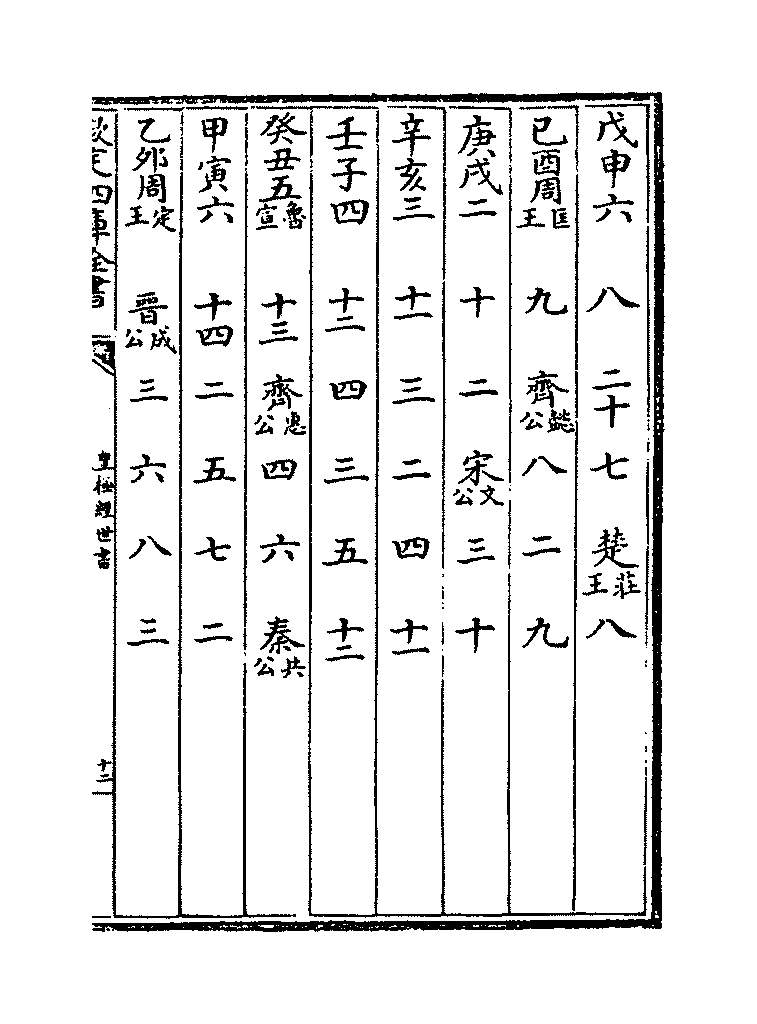 戊申六　八　二十　七　楚莊王　八
己酉周匡王　九　齊懿公　八　二　九
庚戌二　十　二　宋文公　三　十
辛亥三　十一　三　二　四　十一
壬子四　十二　四　三　五　十二
癸丑五魯宣　十三　齊惠公　四　六　秦共公
甲寅六　十四　二　五　七　二
乙夘周定王　晉成公　三　六　八　三
欽定四庫全書　皇極經世書　十二